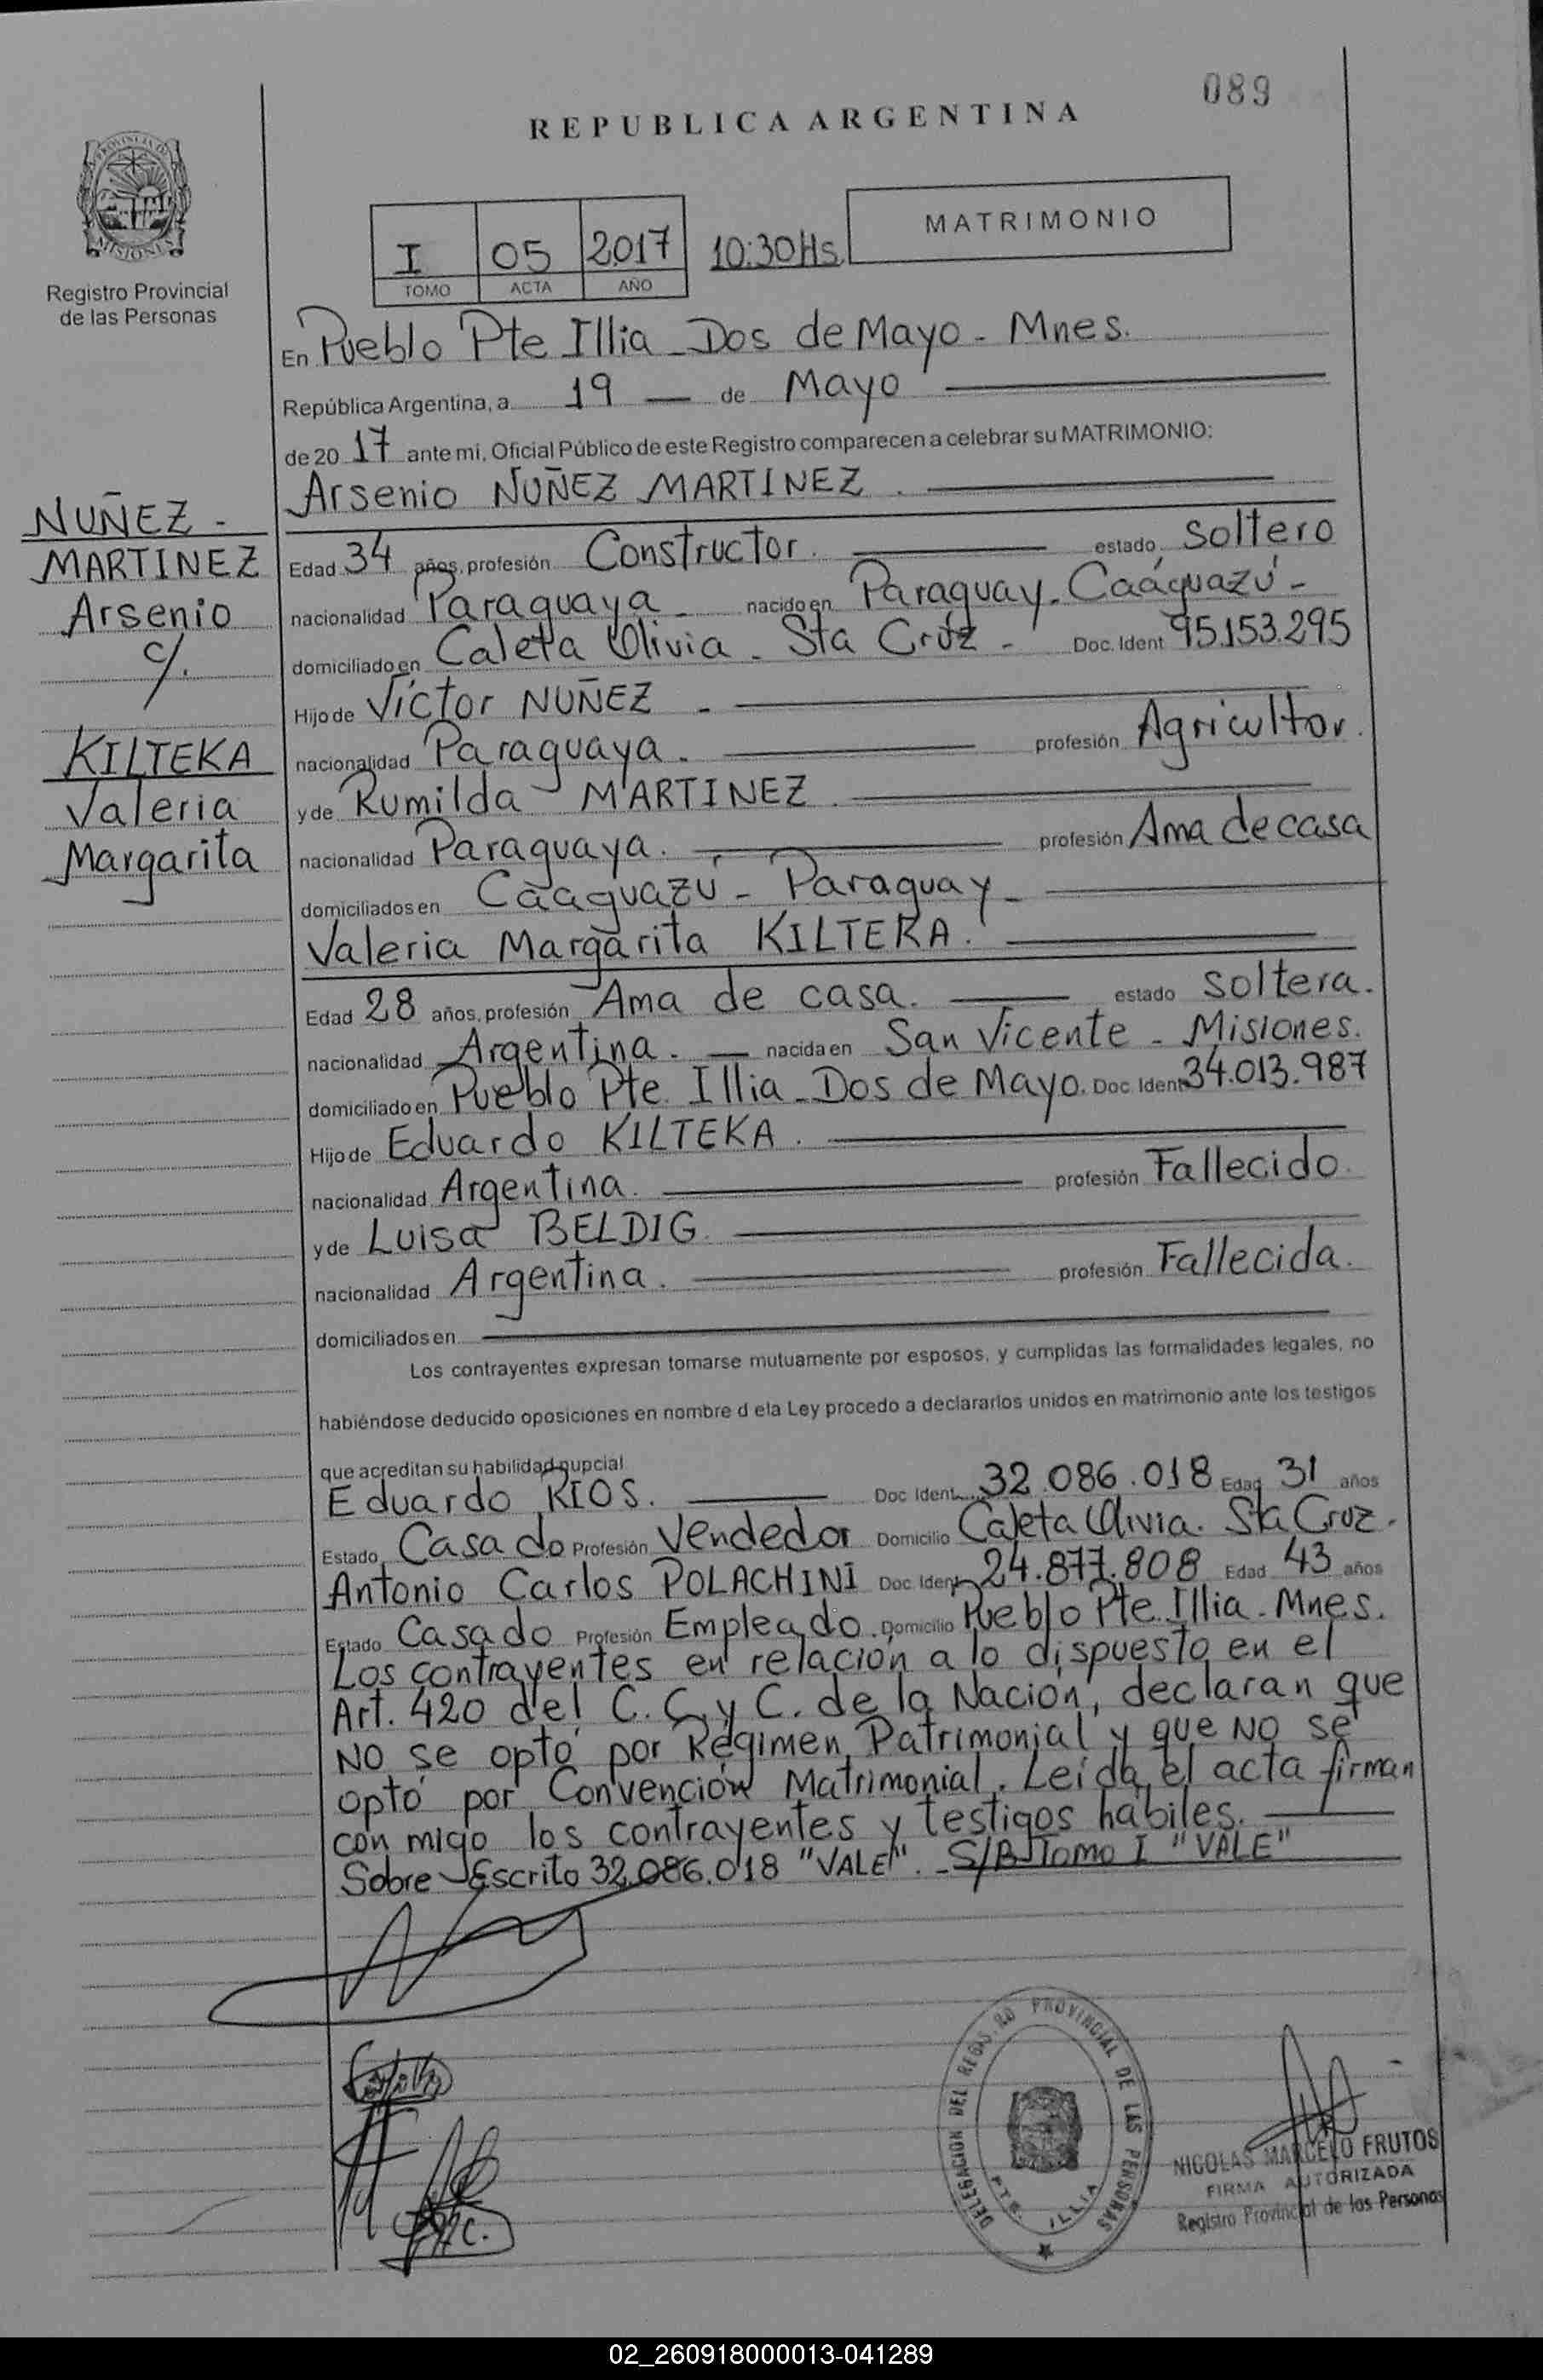 089
REPUBLICA ARGENTINA
PROVINCIA DE
MISIONES
Registro Provincial
de las Personas
I 05 2017 10:30Hs.
TOMO ACTA AÑO
MATRIMONIO
En Pueblo Pte Illia - Dos de Mayo - Mnes.
República Argentina, a 19 — de Mayo
de 20 17 ante mi, Oficial Público de este Registro comparecen a celebrar su MATRIMONIO:
Arsenio NUÑEZ MARTINEZ.
NUÑEZ -
MARTINEZ
Arsenio
c/.
KILTEKA
Valeria
Margarita
Edad 34 años, profesión Constructor. estado Soltero
nacionalidad Paraguaya - nacido en Paraguay - Caáguazú -
domiciliado en Caleta Olivia - Sta Crúz - Doc. Ident 95.153.295
Hijo de Víctor NUÑEZ -
nacionalidad Paraguaya. profesión Agricultor.
y de Rumilda MARTINEZ.
nacionalidad Paraguaya. profesión Ama de casa
domiciliados en Cáaguazú - Paraguay -
Valeria Margarita KILTEKA.
Edad 28 años, profesión Ama de casa. estado Soltera.
nacionalidad Argentina. — nacida en San Vicente - Misiones.
domiciliado en Pueblo Pte. Illia - Dos de Mayo. Doc Ident 34.013.987
Hijo de Eduardo KILTEKA.
nacionalidad Argentina. profesión Fallecido.
y de Luisa BELDIG.
nacionalidad Argentina. profesión Fallecida.
domiciliados en
Los contrayentes expresan tomarse mutuamente por esposos, y cumplidas las formalidades legales, no
habiéndose deducido oposiciones en nombre d ela Ley procedo a declararlos unidos en matrimonio ante los testigos
que acreditan su habilidad nupcial
Eduardo RIOS. Doc Ident. 32.086.018 Edad 31 años
Estado Casado Profesión Vendedor Domicilio Caleta Olivia. Sta Cruz.
Antonio Carlos POLACHINI Doc. Ident 24.877.808 Edad 43 años
Estado Casado Profesión Empleado. Domicilio Pueblo Pte. Illia - Mnes.
Los contrayentes en relación a lo dispuesto en el
Art. 420 del C. C. y C. de la Nación, declaran que
NO se optó por Régimen Patrimonial y que NO se
optó por Convención Matrimonial. Leída el acta firman
con migo los contrayentes y testigos hábiles.
Sobre Escrito 32.086.018 "VALE". - S/B Tomo I "VALE"
DELEGACION DEL REGIS.RO PROVINCIAL DE LAS PERSONAS
PTE. ILLIA
NICOLAS MARCELO FRUTOS
FIRMA AUTORIZADA
Registro Provincial de las Personas
02_260918000013-041289